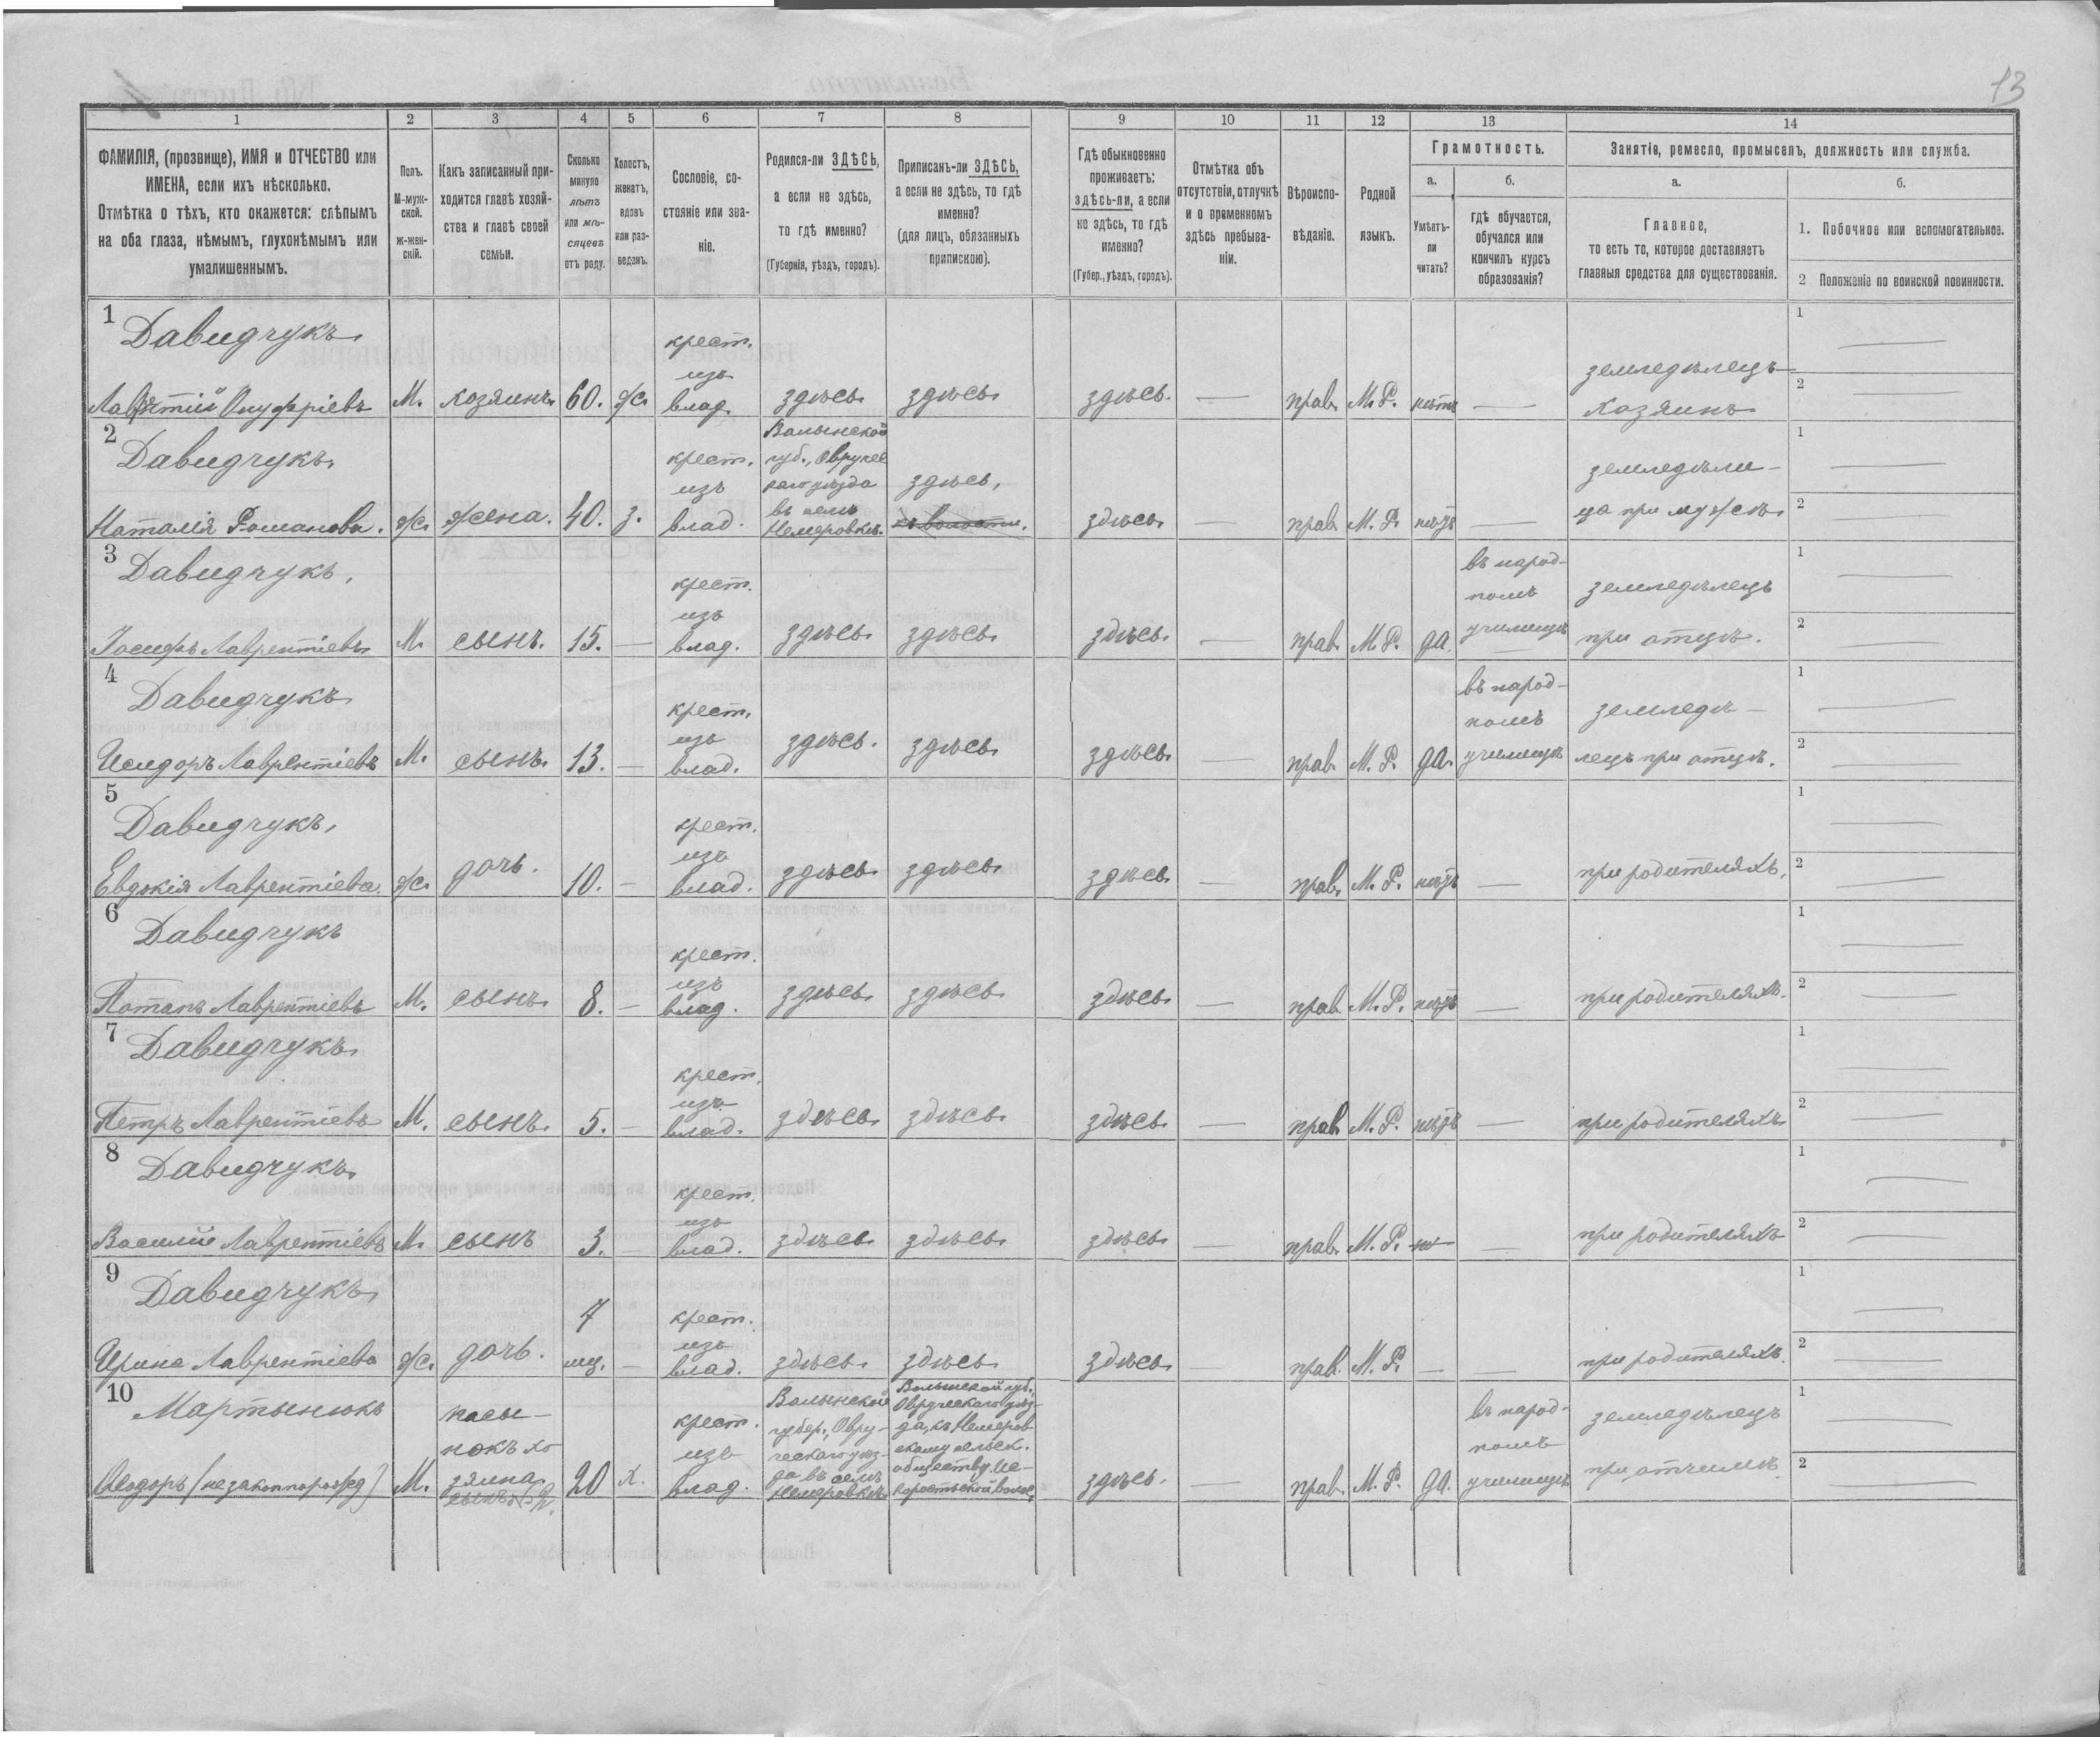 13
1 2 3 4 5 6 7 8 9 10 11 12 13 14
ФАМИЛІЯ, (прозвище), ИМЯ и ОТЧЕСТВО или
ИМЕНА, если ихъ нѣсколько.
Отмѣтка о тѣхъ, кто окажется: слѣпымъ
на оба глаза, нѣмымъ, глухонѣмымъ или
умалишеннымъ.
Полъ.
М-муж-
ской.
ж-жен-
скій.
Какъ записанный при-
ходится главѣ хозяй-
ства и главѣ своей
семьи.
Сколько
минуло
лѣтъ
или мѣ-
сяцевъ
отъ роду.
Холостъ,
женатъ,
вдовъ
или раз-
веденъ.
Сословіе, со-
стояніе или зва-
ніе.
Родился-ли ЗДѢСЬ,
а если не здѣсь,
то гдѣ именно?
(Губернія, уѣздъ, городъ).
Приписанъ-ли ЗДѢСЬ,
а если не здѣсь, то гдѣ
именно?
(для лицъ, обязанныхъ
припискою).
Гдѣ обыкновенно
проживаетъ:
здѣсь-ли, а если
не здѣсь, то гдѣ
именно?
(Губер., уѣздъ, городъ).
Отмѣтка объ
отсутствіи, отлучкѣ
и о временномъ
здѣсь пребыва-
ніи.
Вѣроиспо-
вѣданіе.
Родной
языкъ.
Грамотность.
а.
Умѣетъ-
ли
читать?
б.
гдѣ обучается,
обучался или
кончилъ курсъ
образованія?
Занятіе, ремесло, промыселъ, должность или служба.
а.
Главное,
то есть то, которое доставляетъ
главныя средства для существованія.
б.
1. Побочное или вспомогательное.
2 Положеніе по воинской повинности.
1 Давидчукъ
Лаврѣтій Онуфріевъ
М. хозяинъ 60. ж.
крест.
изъ
влад.
здѣсь здѣсь здѣсь — прав. М. Р. нѣтъ —
земледѣлецъ
хозяинъ
1 —
2 —
2 Давидчукъ.
Наталія Романова.
ж. жена. 40. з.
крест.
изъ
влад.
Волынской
губ., Овручс
каго уѣзда
въ селѣ
Немеровкѣ.
здѣсь,
къ волости.
здѣсь прав. М. Р. нѣтъ —
земледѣли-
ца при мужѣ
1 —
2 —
3 Давидчукъ,
Іосифъ Лаврентіевъ
М. сынъ. 15. —
крест.
изъ
влад.
здѣсь здѣсь здѣсь — прав. М. Р. да.
въ народ-
номъ
училищѣ
земледѣлецъ
при отцѣ.
1 —
2 —
4 Давидчукъ
Исидоръ Лаврентіевъ
М. сынъ. 13. —
крест.
изъ
влад.
здѣсь. здѣсь здѣсь — прав. М. Р. да.
въ народ-
номъ
училищѣ
земледѣ-
лецъ при отцѣ.
1 —
2 —
5 Давидчукъ,
Евдокія Лаврентіева.
ж. дочь. 10. —
крест.
изъ
влад.
здѣсь здѣсь здѣсь — прав. М. Р. нѣтъ —
при родителяхъ,
1 —
2 —
6 Давидчукъ
Потапъ Лаврентіевъ
М. сынъ. 8. —
крест.
изъ
влад.
здѣсь здѣсь здѣсь — прав. М. Р. нѣтъ —
при родителяхъ.
1 —
2 —
7 Давидчукъ
Петръ Лаврентіевъ
М. сынъ. 5. —
крест.
изъ
влад.
здѣсь здѣсь здѣсь — прав. М. Р. нѣтъ —
при родителяхъ
1 —
2 —
8 Давидчукъ
Василій Лаврентіевъ
М. сынъ 3. —
крест.
изъ
влад.
здѣсь здѣсь здѣсь — прав. М. Р. —
при родителяхъ
1 —
2 —
9 Давидчукъ
Ирина Лаврентіева
ж. дочь. 7
мц. —
крест.
изъ
влад.
здѣсь здѣсь здѣсь — прав. М. Р. — —
при родителяхъ.
1 —
2 —
10 Мартынюкъ
Ѳеодоръ (незаконнорожд)
М.
пасы-
нокъ хо
зяина.
20 х.
крест.
изъ
влад.
Волынской
губер., Овру-
ческаго уѣз-
да въ селѣ
Немеровкѣ
Волынской губ.,
Овручскаго уѣз-
да, къ Немеров-
скому сельск.
обществу, Ис-
коростьской волос,
здѣсь. — прав. М. Р. да.
въ народ-
номъ
училищѣ
земледѣлецъ
при отчимѣ
1 —
2 —